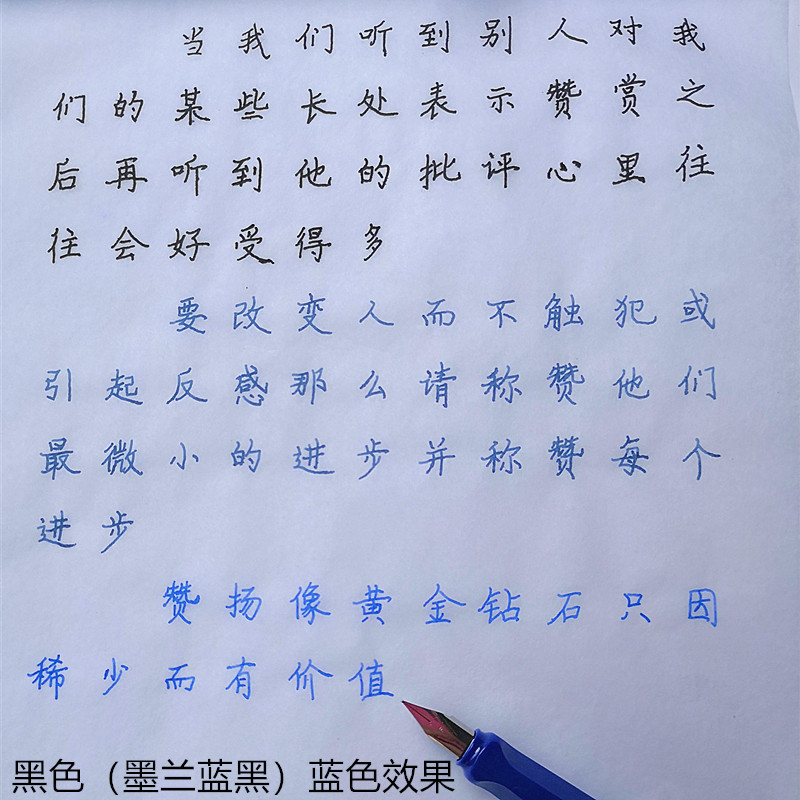 当我们听到别人对我
们的某些长处表示赞赏之
后再听到他的批评心里往
往会好受得多
要改变人而不触犯或
引起反感那么请称赞他们
最微小的进步并称赞每个
进步
赞扬像黄金钻石只因
稀少而有价值
黑色（墨兰蓝黑）蓝色效果